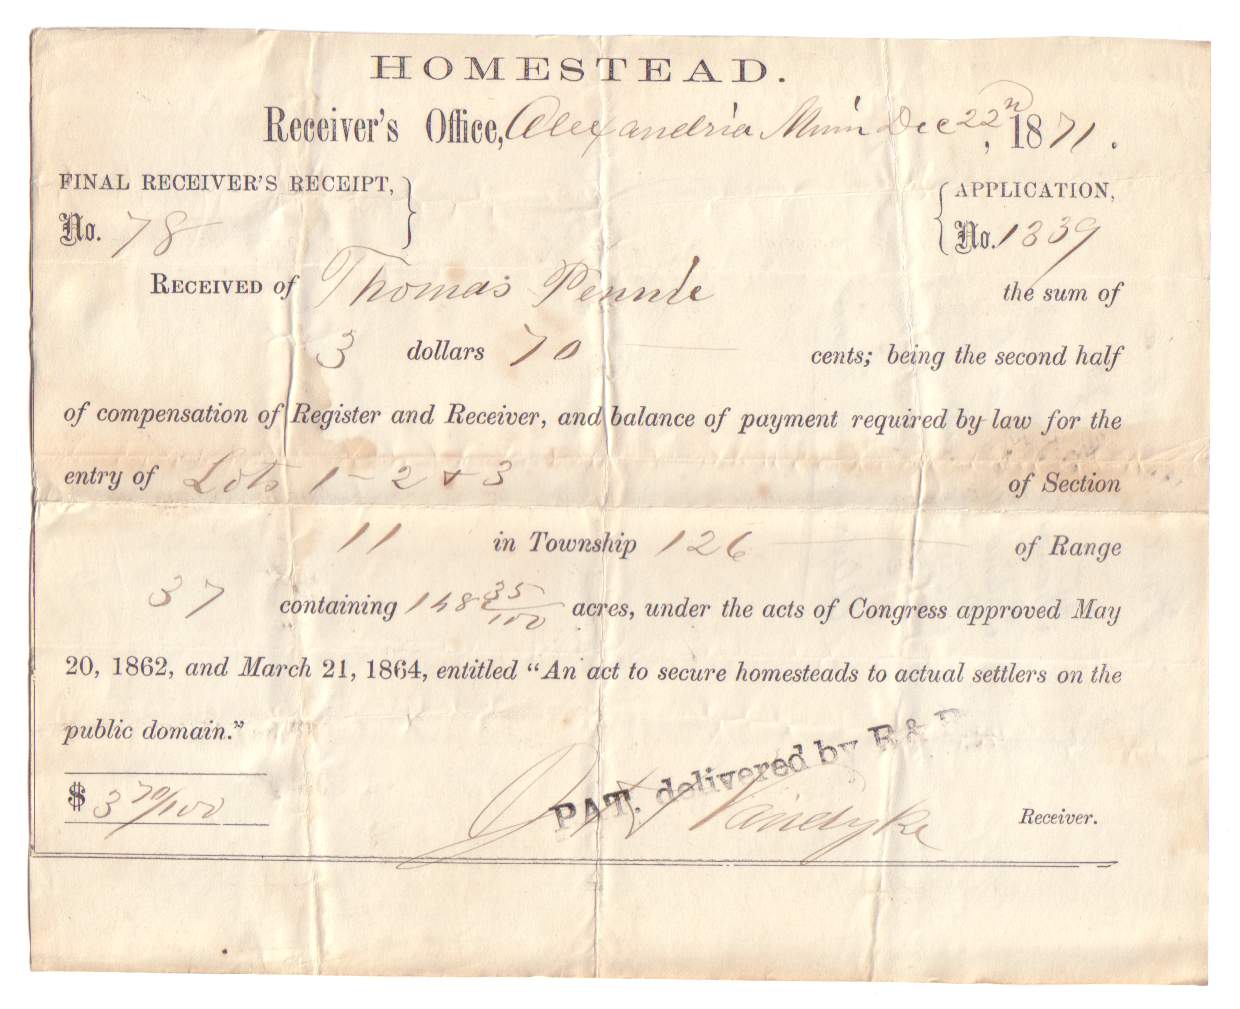 HOMESTEAD.
Receiver's Office, Alexandria Minn Dec 22n, 1871.
FINAL RECEIVER'S RECEIPT, } { APPLICATION,
No. 78 No. 1339
RECEIVED of Thomas Pennie the sum of
3 dollars 70 cents; being the second half
of compensation of Register and Receiver, and balance of payment required by law for the
entry of Lots 1 - 2 & 3 of Section
11 in Township 126 of Range
37 containing 148 35/100 acres, under the acts of Congress approved May
20, 1862, and March 21, 1864, entitled "An act to secure homesteads to actual settlers on the
public domain."
PAT. delivered by R &
$ 3 70/100 Vandyke Receiver.